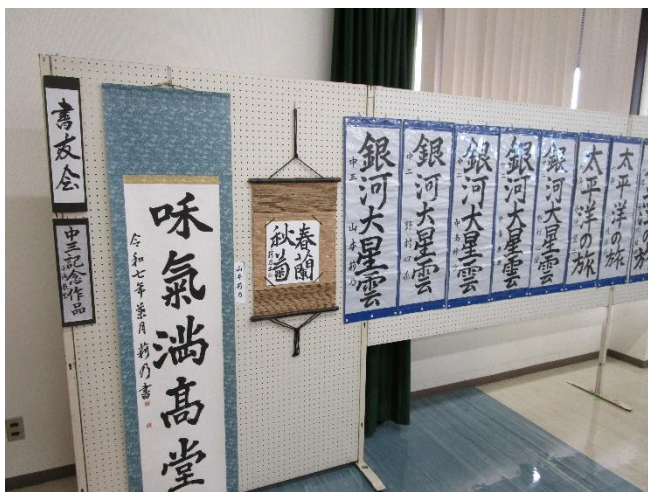 書友会
中三記念作品
咊氣満高堂
令和七年葉月 莉乃書
春蘭
秋菊
山本莉乃
銀河大星雲
中三 山本莉乃
銀河大星雲
中二
銀河大星雲
中二
銀河大星雲
中二
銀河大星雲
太平洋の旅
太平洋の旅